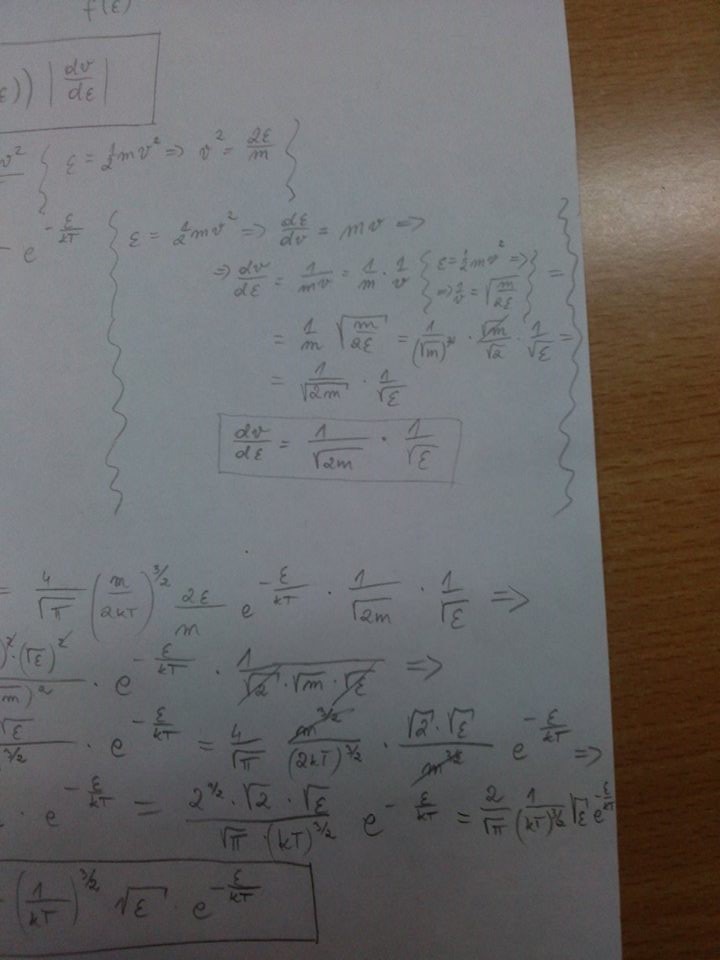 f(ε)
ε)) | dv/dε |
v² { ε = 1/2 mv² => v² = 2ε/m }
e^(-ε/kT) { ε = 1/2 mv² => dε/dv = mv =>
=> dv/dε = 1/(mv) = 1/m · 1/v { ε = 1/2 mv² => => 1/v = √(m/2ε) } =
= 1/m √(m/2ε) = 1/(√m)² · √m/√2 · 1/√ε =
= 1/√2m · 1/√ε
dv/dε = 1/√2m · 1/√ε }
= 4/√π (m/2kT)^(3/2) 2ε/m e^(-ε/kT) · 1/√2m · 1/√ε =>
)² · (√ε)² / m)² · e^(-ε/kT) · 1/(√2 · √m · √ε) =>
√ε / ^(3/2) · e^(-ε/kT) = 4/√π m^(3/2)/(2kT)^(3/2) · √2 · √ε / m^(3/2) e^(-ε/kT) =>
· e^(-ε/kT) = · √2 · √ε / (√π · (kT)^(3/2)) e^(-ε/kT) = 2/√π 1/(kT)^(3/2) √ε e^(-ε/kT)
(1/kT)^(3/2) √ε · e^(-ε/kT)